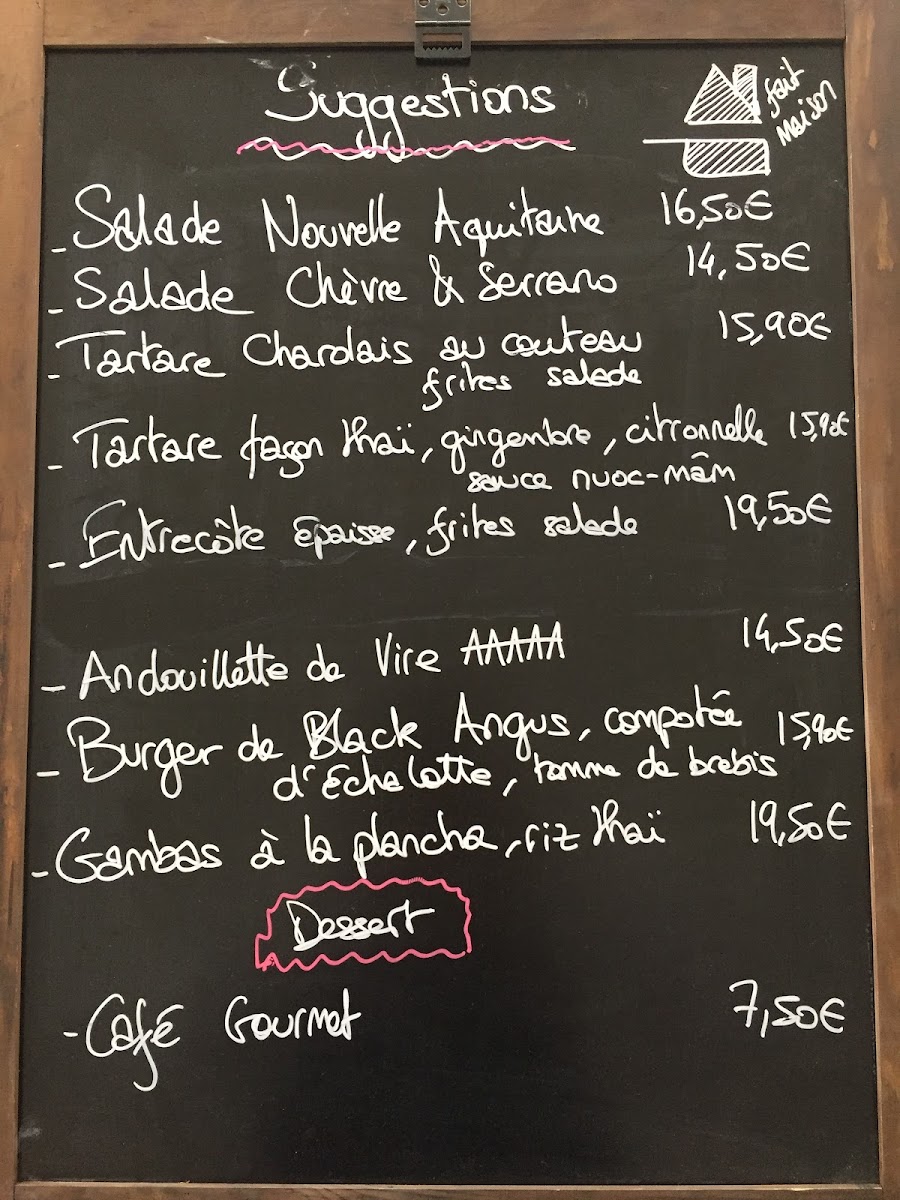 Suggestions
fait
Maison
- Salade Nouvelle Aquitaine 16,50€
- Salade Chèvre & Serrano 14,50€
- Tartare Charolais au couteau 15,90€
frites salade
- Tartare façon thaï, gingembre, citronnelle 15,90€
sauce nuoc-mâm
- Entrecôte épaisse, frites salade 19,50€
- Andouillette de Vire AAAAA 14,50€
- Burger de Black Angus, compotée 15,90€
d'échalotte, tomme de brebis
- Gambas à la plancha, riz thaï 19,50€
Dessert
- Café Gourmet 7,50€